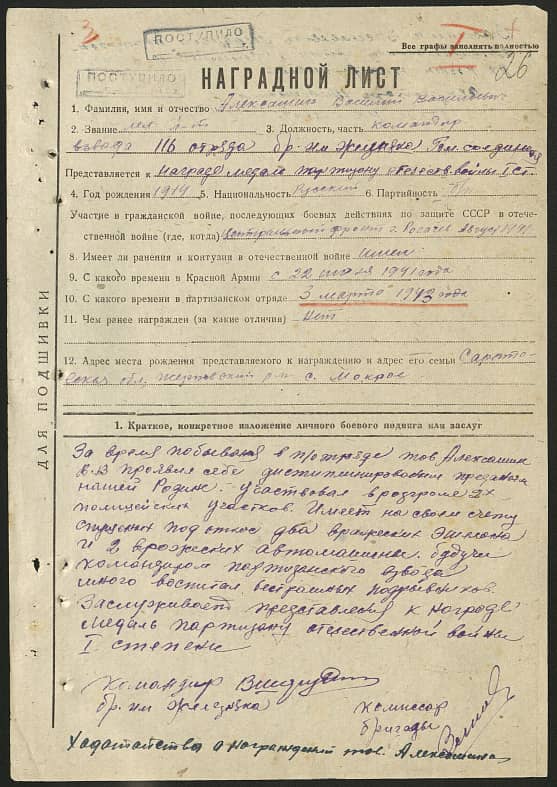 3
ПОСТУПИЛО
Все графы заполнять полностью
I
26
ПОСТУПИЛО
НАГРАДНОЙ ЛИСТ
1. Фамилия, имя и отчество Алексашин Василий Васильевич
2. Звание мл. л-т 3. Должность, часть командир
взвода 116 отряда бр. им Железняка Гом. соединения
Представляется к награде медаль партизану отечеств. войны I ст.
4. Год рождения 1914 5. Национальность Русский 6. Партийность б/п
Участие в гражданской войне, последующих боевых действиях по защите СССР в отече-
ственной войне (где, когда) Центральный фронт г. Рогачев Август 1941
8. Имеет ли ранения и контузии в отечественной войне имел
9. С какого времени в Красной Армии с 22 1941 года
10. С какого времени в партизанском отряде 3 марта 1943 года
11. Чем ранее награжден (за какие отличия) Нет
12. Адрес места рождения представляемого к награждению и адрес его семьи Сарато-
вская обл. р-н с. Мокрое
ДЛЯ ПОДШИВКИ
1. Краткое, конкретное изложение личного боевого подвига или заслуг
За время побывания в п/отряде тов. Алексашин
В.В проявил себе дисциплинированым преданым
нашей Родине. участвовал в розгроме 2х
полицейских участков. Имеет на своем счету
спущеных под откос два вражеских эшелона
и 2 врожеских автомашины. будучи
командиром партизанского взвода
много воспитал бестрашных подрывников.
Заслуживает представления к награде
медаль партизану отечественной войны
I степени
Командир
бр. им Железняка
Комиссар
бригады
Ходатайство о награждении тов. Алексашина